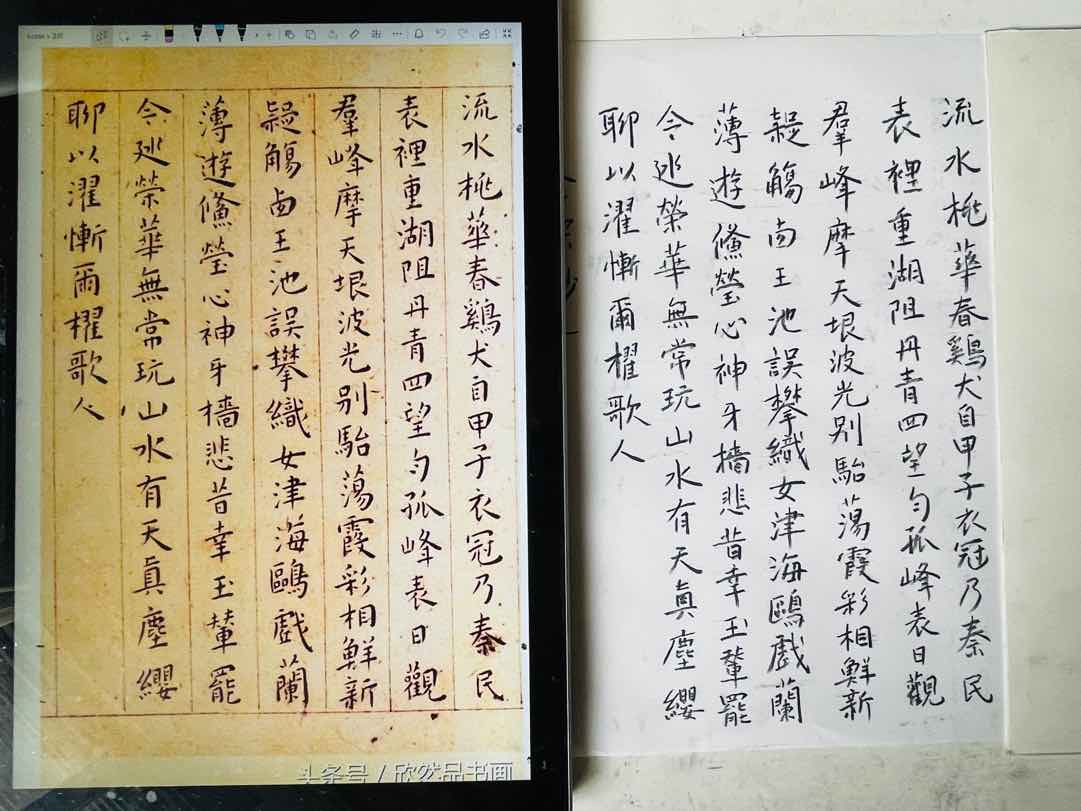 流水桃華春鷄犬自甲子衣冠乃秦民
表裡重湖阻丹青四望勻孤峰表日觀
羣峰摩天垠波光别駘蕩霞彩相鮮新
疑觴王池誤攀織女津海鷗戲蘭
薄遊儵瑩心神牙檣悲昔幸玉輦罷
今逃榮華無常玩山水有天眞塵纓
聊以濯慚爾櫂歌人
头条号/欣然品书画
流水桃華春鷄犬自甲子衣冠乃秦民
表裡重湖阻丹青四望勻孤峰表日觀
羣峰摩天垠波光别駘蕩霞彩相鮮新
疑觴王池誤攀織女津海鷗戲蘭
薄遊儵瑩心神牙檣悲昔幸玉輦罷
今逃榮華無常玩山水有天眞塵纓
聊以濯慚爾櫂歌人